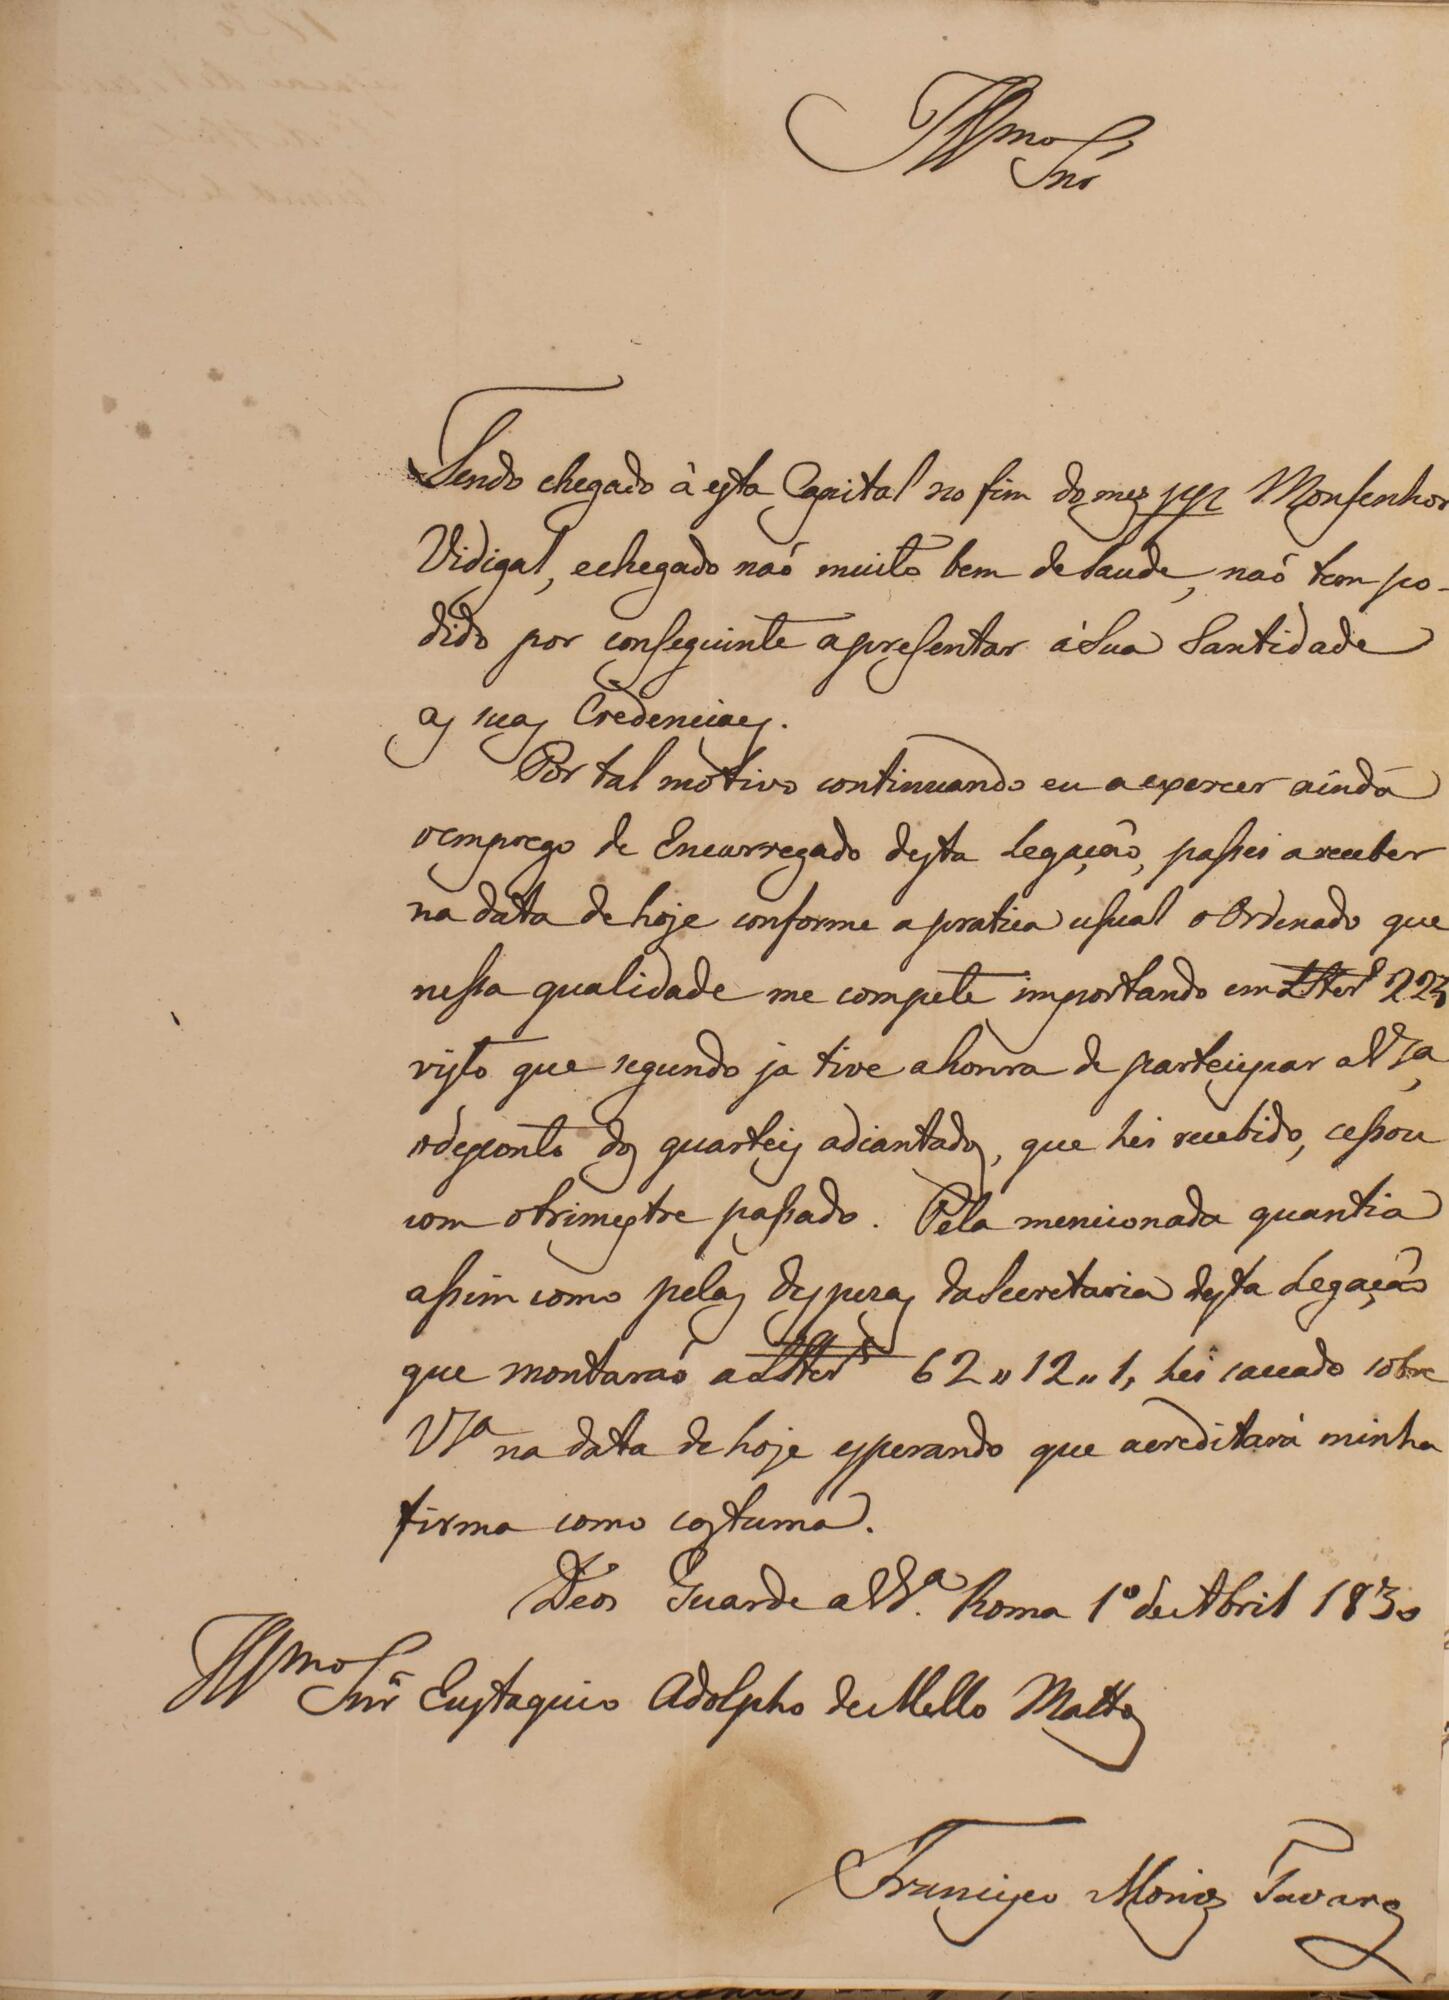 Illmo Snr
Sendo chegado à esta Capital no fim do mez ppp Monsenhor
Vidigal, e chegado naó muito bem de saude, naó tem po-
dido por conseguinte apresentar á Sua Santidade
as suas Credenciaes.
Por tal motivo continuando eu a exercer ainda
o emprego de Encarregado desta Legação, passei a receber
na data de hoje conforme a pratica usual o Ordenado que
nessa qualidade me compete importando em £ Sters 225
visto que segundo ja tive a honra de partecipar a VSa,
o desconto dos quarteis adiantados, que hei recebido, cessou
com o trimestre passado. Pela mencionada quantia
assim como pelas despezas da Secretaria desta Legação
que montaraó a £ Sters 62 " 12 " 1, hei saccado sobre
VSa na data de hoje esperando que acreditará minha
firma como costuma.
Deos Guarde a VSa. Roma 1o de Abril 1830
Illmo Snr Eustaquio Adolpho de Mello Mattos
Francisco Moniz Tavares